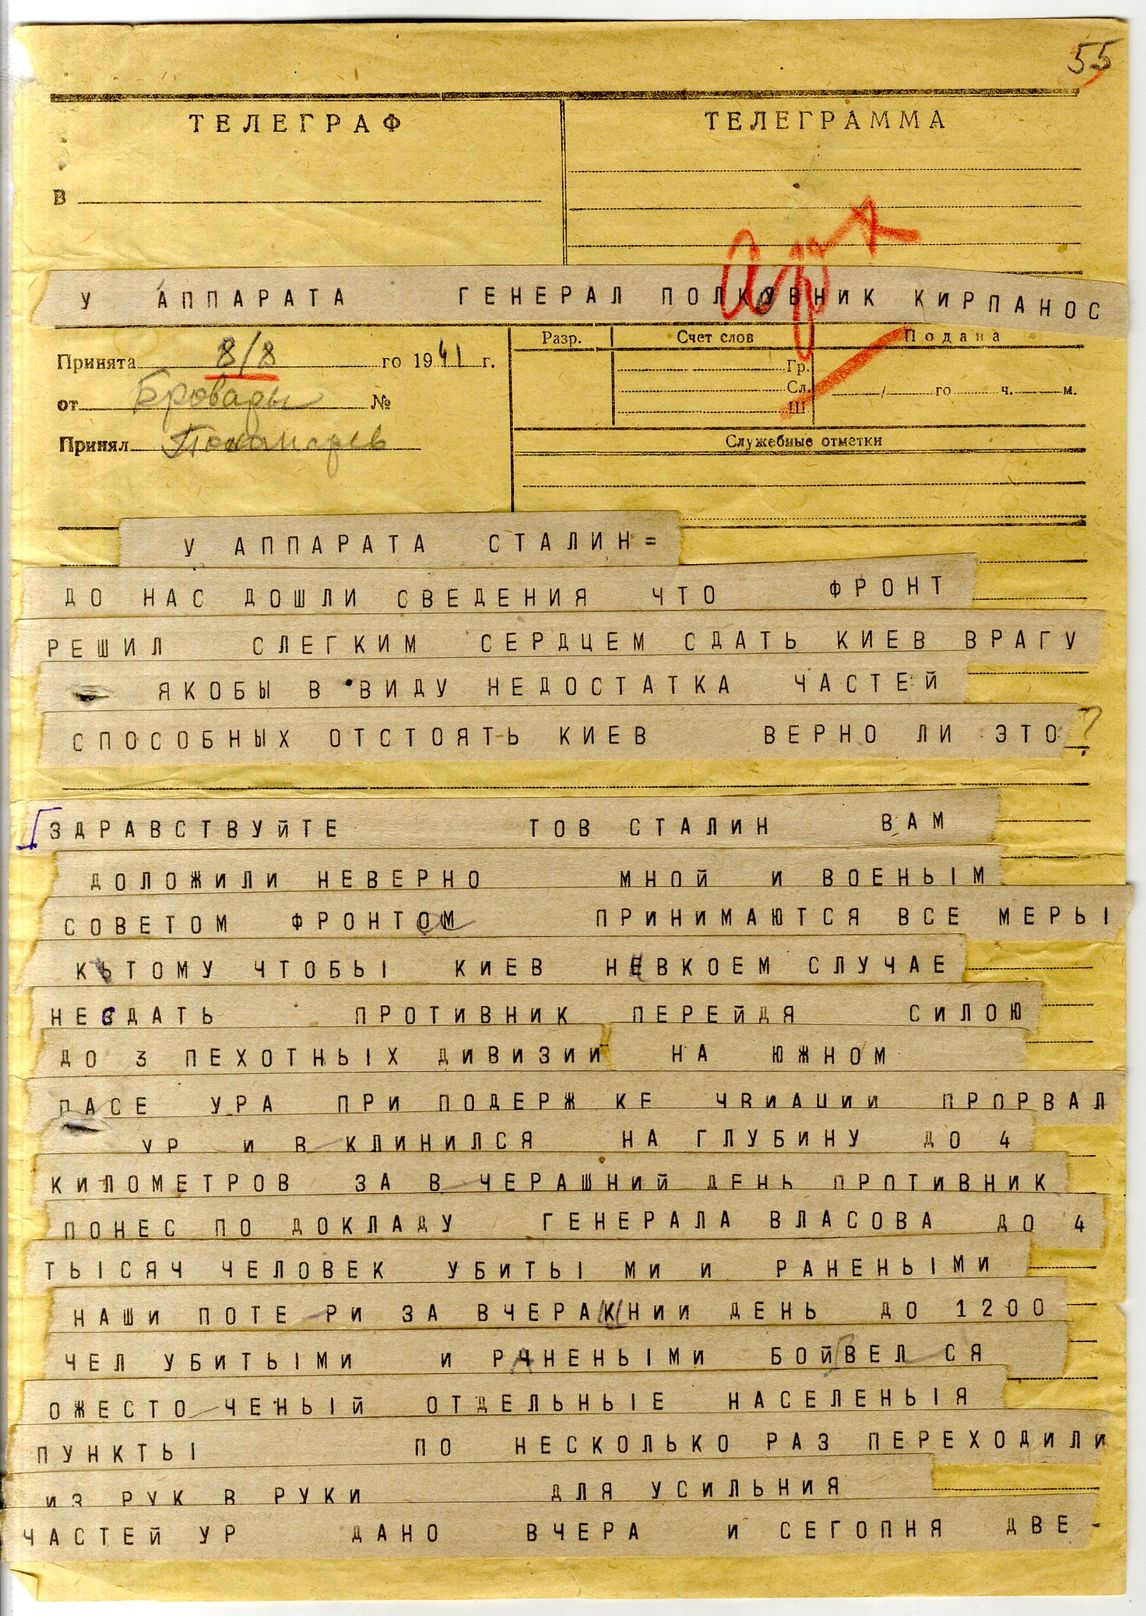 55
ТЕЛЕГРАФ
ТЕЛЕГРАММА
В
Арх
У АППАРАТА ГЕНЕРАЛ ПОЛКОВНИК КИРПАНОС
Принята 8/8 го 1941 г.
Разр.
Счет слов
Подана
Гр.
Сл.
Ш
/ го ч. м.
от Бровары №
Принял Пономарев
Служебные отметки
У АППАРАТА СТАЛИН=
ДО НАС ДОШЛИ СВЕДЕНИЯ ЧТО ФРОНТ
РЕШИЛ СЛЕГКИМ СЕРДЦЕМ СДАТЬ КИЕВ ВРАГУ
ЯКОБЫ В ВИДУ НЕДОСТАТКА ЧАСТЕЙ
СПОСОБНЫХ ОТСТОЯТЬ КИЕВ ВЕРНО ЛИ ЭТО?
ЗДРАВСТВУЙТЕ ТОВ СТАЛИН ВАМ
ДОЛОЖИЛИ НЕВЕРНО МНОЙ И ВОЕНЫМ
СОВЕТОМ ФРОНТОМ ПРИНИМАЮТСЯ ВСЕ МЕРЫ
КЬТОМУ ЧТОБЫ КИЕВ НЕВКОЕМ СЛУЧАЕ
НЕСДАТЬ ПРОТИВНИК ПЕРЕЙДЯ СИЛОЮ
ДО 3 ПЕХОТНЫХ ДИВИЗИИ НА ЮЖНОМ
ПАСЕ УРА ПРИ ПОДЕРЖ КЕ ЧВИАЦИИ ПРОРВАЛ
УР И В КЛИНИЛСЯ НА ГЛУБИНУ ДО 4
КИЛОМЕТРОВ ЗА В ЧЕРАШНИЙ ДЕНЬ ПРОТИВНИК
ПОНЕС ПО ДОКЛАДУ ГЕНЕРАЛА ВЛАСОВА ДО 4
ТЫСЯЧ ЧЕЛОВЕК УБИТЫ МИ И РАНЕНЫМИ
НАШИ ПОТЕ РИ ЗА ВЧЕРАКНИИ ДЕНЬ ДО 1200
ЧЕЛ УБИТЫМИ И РАНЕНЫМИ БОЙВЕЛ СЯ
ОЖЕСТО ЧЕНЫЙ ОТДЕЛЬНЫЕ НАСЕЛЕНЫЯ
ПУНКТЫ ПО НЕСКОЛЬКО РАЗ ПЕРЕХОДИЛИ
ИЗ РУК В РУКИ ДЛЯ УСИЛЬНИЯ
ЧАСТЕЙ УР ДАНО ВЧЕРА И СЕГОПНЯ ДВЕ-